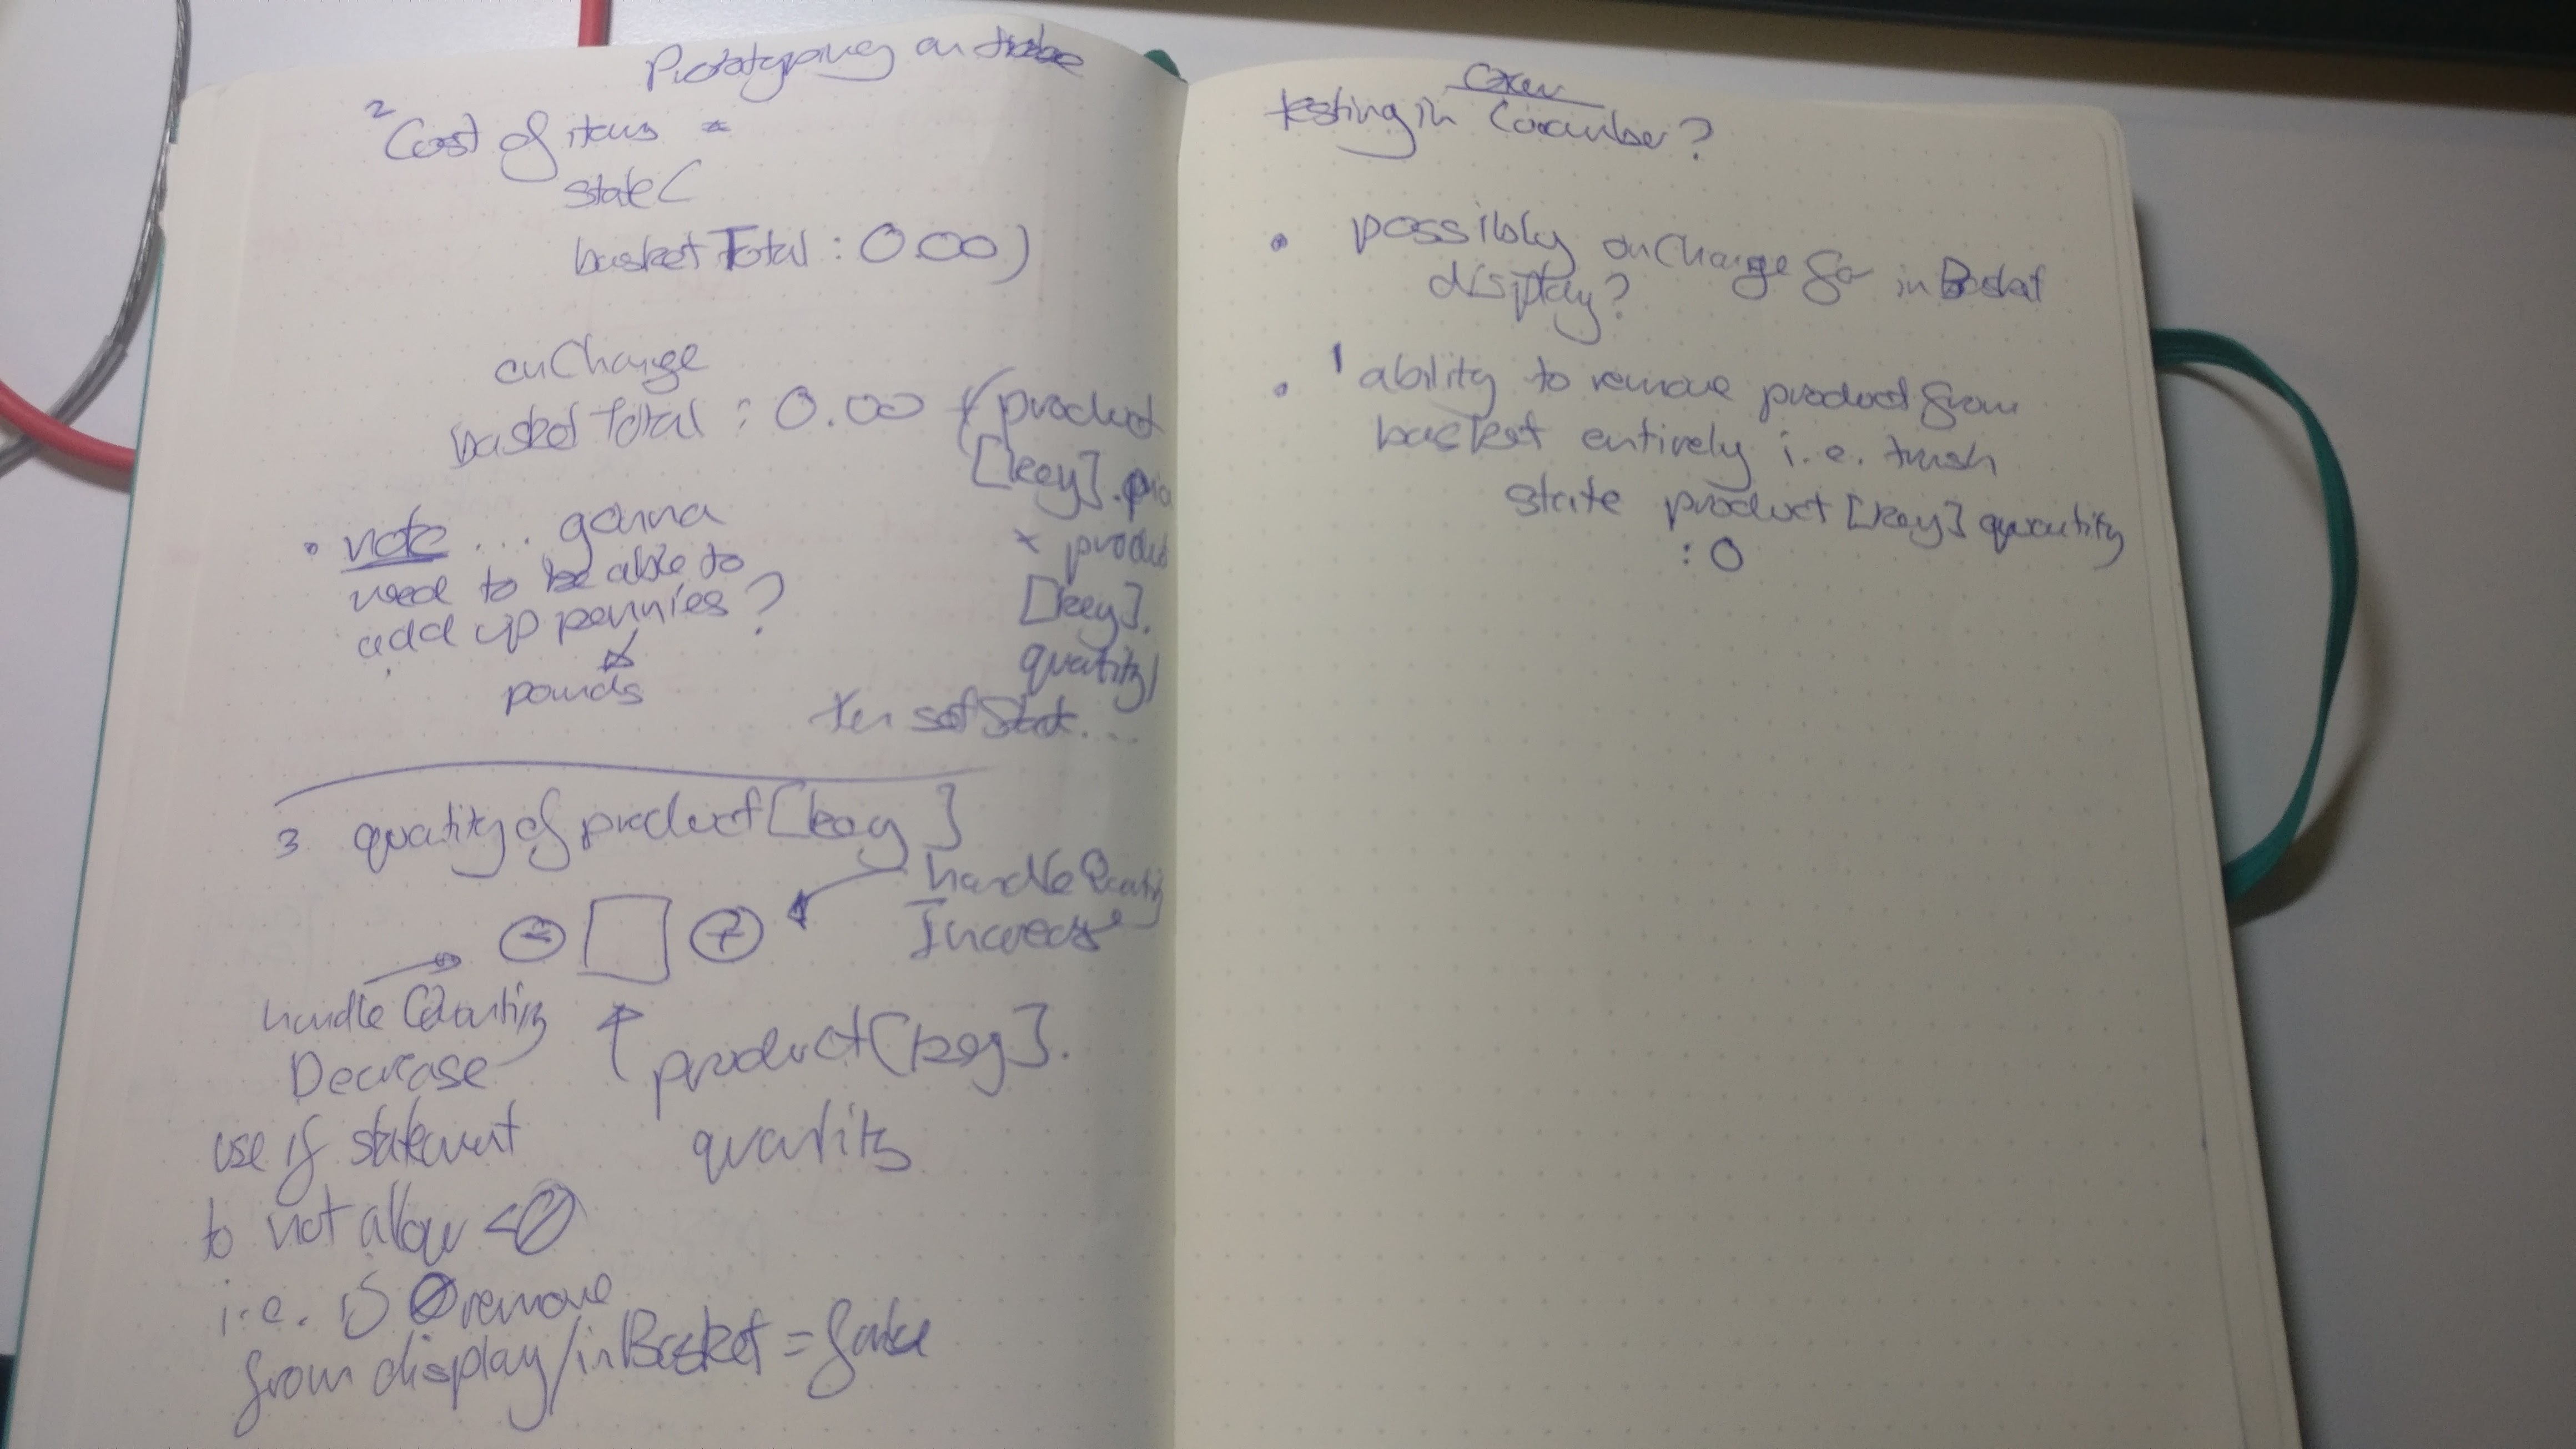 Prototyping on
2 Cost of items =
state(
basketTotal : 0.00)
onChange
basketTotal : 0.00 + (product
[key].
x product
[key].
quantity)
setState...
• note ... gonna
need to be able to
add up pennies?
pounds
3 quantity of product[key]
handleQuantity
Increase
- +
handleQuantity
Decrease
product[key].
quantity
use if statement
to not allow <0
i.e. if 0 remove
from display/inBasket = false
testing in Cucumber?
• possibly onChange for inBasket
display?
• 1 ability to remove product from
basket entirely i.e. trash
state product[key] quantity
: 0